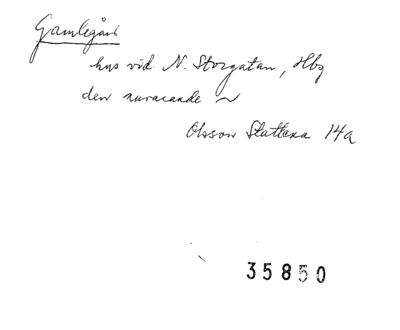 Gamlegård
hus vid N. Storgatan, Hbg
den nuvarande ~
Olsson Stattena 14a
35850